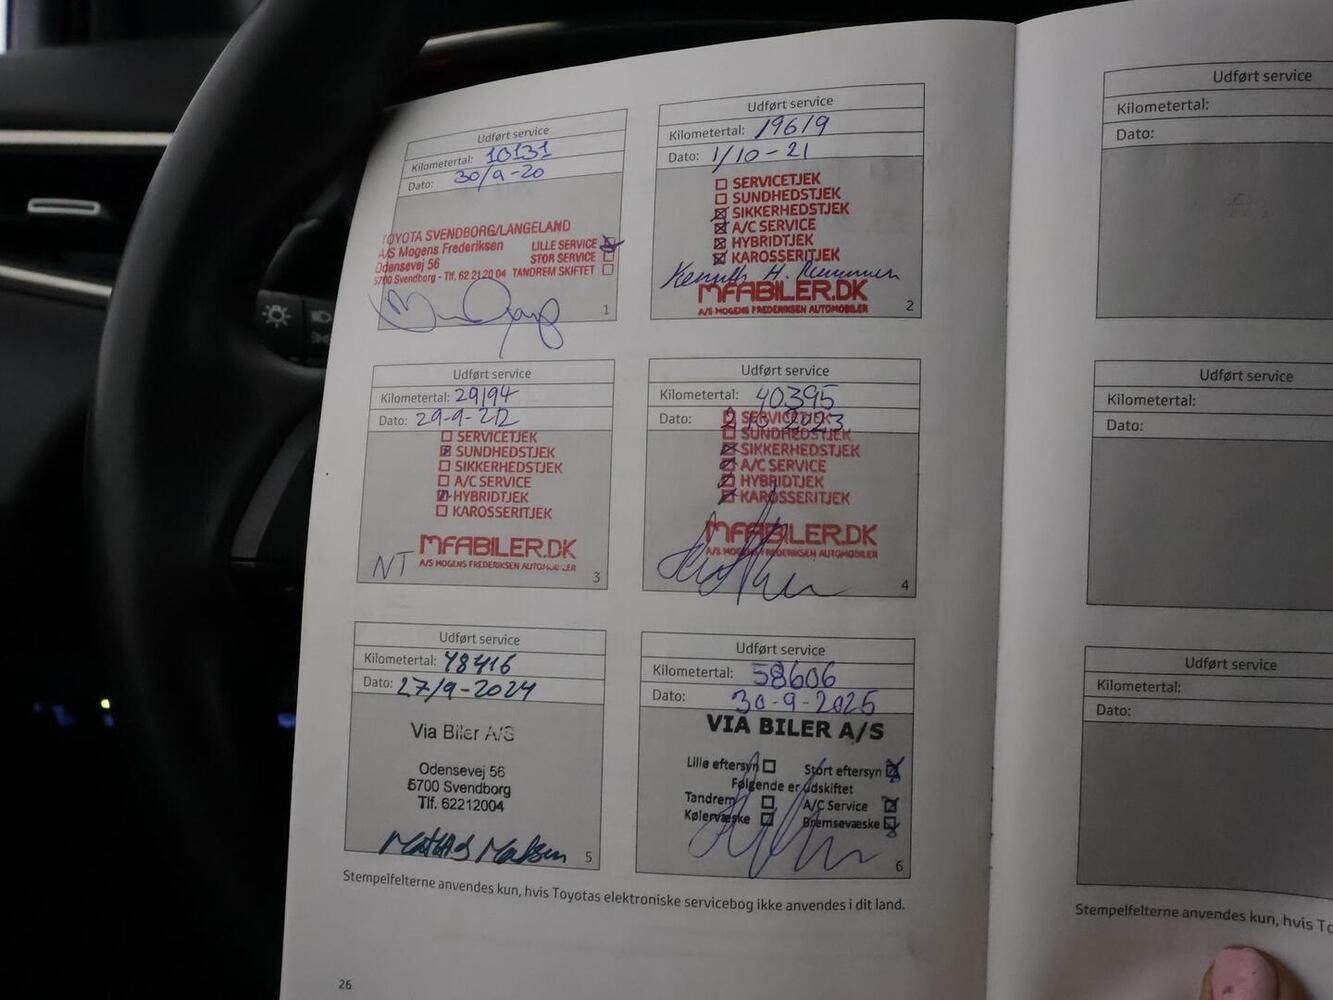 Udført service
Kilometertal: 10131
Dato: 30/9-20
TOYOTA SVENDBORG/LANGELAND
A/S Mogens Frederiksen
LILLE SERVICE
Odensevej 56
STOR SERVICE
5700 Svendborg - Tlf. 62 21 20 04
TANDREM SKIFTET
1
Udført service
Kilometertal: 19619
Dato: 1/10-21
SERVICETJEK
SUNDHEDSTJEK
SIKKERHEDSTJEK
A/C SERVICE
HYBRIDTJEK
KAROSSERITJEK
Kenneth H.
MFABILER.DK
A/S MOGENS FREDERIKSEN AUTOMOBILER
2
Udført service
Kilometertal: 29194
Dato: 29-9-22
SERVICETJEK
SUNDHEDSTJEK
SIKKERHEDSTJEK
A/C SERVICE
HYBRIDTJEK
KAROSSERITJEK
MFABILER.DK
NT
A/S MOGENS FREDERIKSEN AUTOMOBILER
3
Udført service
Kilometertal: 40395
Dato: 2 10 2023
SERVICETJEK
SUNDHEDSTJEK
SIKKERHEDSTJEK
A/C SERVICE
HYBRIDTJEK
KAROSSERITJEK
MFABILER.DK
A/S MOGENS FREDERIKSEN AUTOMOBILER
4
Udført service
Kilometertal: 48416
Dato: 27/9-2024
Via Biler A/S
Odensevej 56
5700 Svendborg
Tlf. 62212004
5
Udført service
Kilometertal: 58606
Dato: 30-9-2025
VIA BILER A/S
Lille eftersyn
Stort eftersyn
Følgende er udskiftet
Tandrem
A/C Service
Kølervæske
Bremsevæske
6
Stempelfelterne anvendes kun, hvis Toyotas elektroniske servicebog ikke anvendes i dit land.
26
Udført service
Kilometertal:
Dato:
Udført service
Kilometertal:
Dato:
Udført service
Kilometertal:
Dato:
Stempelfelterne anvendes kun, hvis